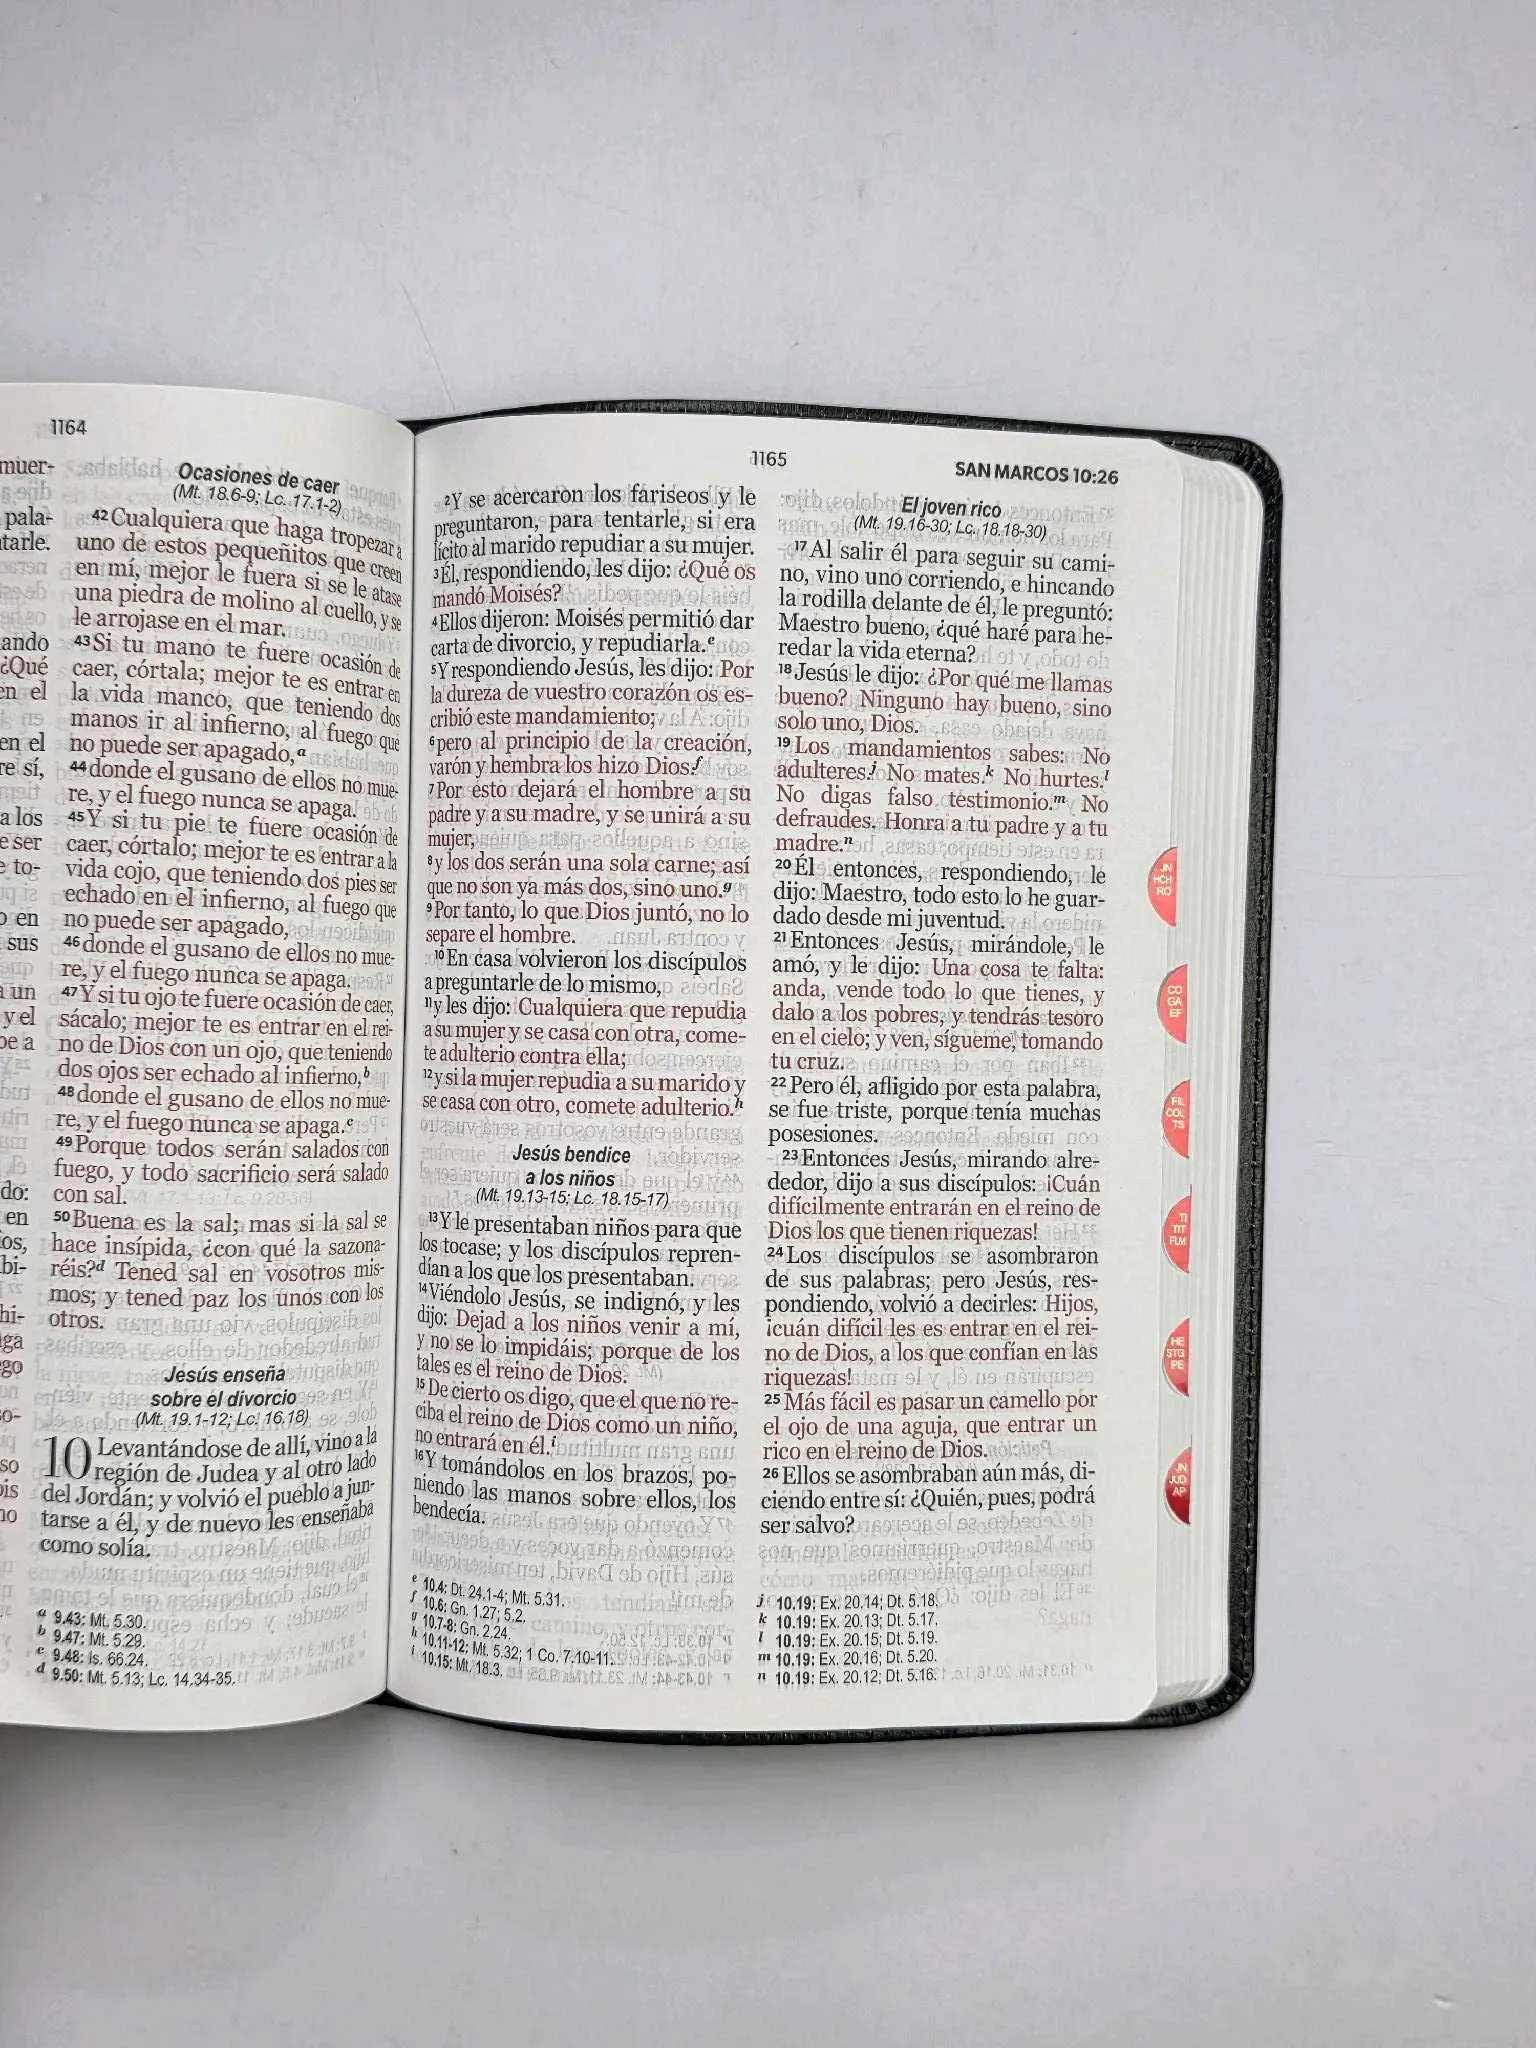 1164
muer-
pala-
tarle.
ando
¿Qué
en el
en el
re sí,
a los
e ser
e to-
o en
sus
a un
y el
be a
do:
en
os,
bi-
hi-
ga
go
so-
so
ois
no
Ocasiones de caer
(Mt. 18.6-9; Lc. 17.1-2)
42 Cualquiera que haga tropezar a
uno de estos pequeñitos que creen
en mí, mejor le fuera si se le atase
una piedra de molino al cuello, y se
le arrojase en el mar.
43 Si tu mano te fuere ocasión de
caer, córtala; mejor te es entrar en
la vida manco, que teniendo dos
manos ir al infierno, al fuego que
no puede ser apagado,a
44 donde el gusano de ellos no mue-
re, y el fuego nunca se apaga.
45 Y si tu pie te fuere ocasión de
caer, córtalo; mejor te es entrar a la
vida cojo, que teniendo dos pies ser
echado en el infierno, al fuego que
no puede ser apagado,
46 donde el gusano de ellos no mue-
re, y el fuego nunca se apaga.
47 Y si tu ojo te fuere ocasión de caer,
sácalo; mejor te es entrar en el rei-
no de Dios con un ojo, que teniendo
dos ojos ser echado al infierno,b
48 donde el gusano de ellos no mue-
re, y el fuego nunca se apaga.c
49 Porque todos serán salados con
fuego, y todo sacrificio será salado
con sal.
50 Buena es la sal; mas si la sal se
hace insípida, ¿con qué la sazona-
réis?d Tened sal en vosotros mis-
mos; y tened paz los unos con los
otros.
Jesús enseña
sobre el divorcio
(Mt. 19.1-12; Lc. 16.18)
10 Levantándose de allí, vino a la
región de Judea y al otro lado
del Jordán; y volvió el pueblo a jun-
tarse a él, y de nuevo les enseñaba
como solía.
a 9.43: Mt. 5.30.
b 9.47: Mt. 5.29.
c 9.48: Is. 66.24.
d 9.50: Mt. 5.13; Lc. 14.34-35.
1165
SAN MARCOS 10:26
2 Y se acercaron los fariseos y le
preguntaron, para tentarle, si era
lícito al marido repudiar a su mujer.
3 Él, respondiendo, les dijo: ¿Qué os
mandó Moisés?
4 Ellos dijeron: Moisés permitió dar
carta de divorcio, y repudiarla.e
5 Y respondiendo Jesús, les dijo: Por
la dureza de vuestro corazón os es-
cribió este mandamiento;
6 pero al principio de la creación,
varón y hembra los hizo Dios.f
7 Por esto dejará el hombre a su
padre y a su madre, y se unirá a su
mujer,
8 y los dos serán una sola carne; así
que no son ya más dos, sino uno.g
9 Por tanto, lo que Dios juntó, no lo
separe el hombre.
10 En casa volvieron los discípulos
a preguntarle de lo mismo,
11 y les dijo: Cualquiera que repudia
a su mujer y se casa con otra, come-
te adulterio contra ella;
12 y si la mujer repudia a su marido y
se casa con otro, comete adulterio.h
Jesús bendice
a los niños
(Mt. 19.13-15; Lc. 18.15-17)
13 Y le presentaban niños para que
los tocase; y los discípulos repren-
dían a los que los presentaban.
14 Viéndolo Jesús, se indignó, y les
dijo: Dejad a los niños venir a mí,
y no se lo impidáis; porque de los
tales es el reino de Dios.
15 De cierto os digo, que el que no re-
ciba el reino de Dios como un niño,
no entrará en él.i
16 Y tomándolos en los brazos, po-
niendo las manos sobre ellos, los
bendecía.
e 10.4: Dt. 24.1-4; Mt. 5.31.
f 10.6: Gn. 1.27; 5.2.
g 10.7-8: Gn. 2.24.
h 10.11-12: Mt. 5.32; 1 Co. 7.10-11.
i 10.15: Mt. 18.3.
El joven rico
(Mt. 19.16-30; Lc. 18.18-30)
17 Al salir él para seguir su cami-
no, vino uno corriendo, e hincando
la rodilla delante de él, le preguntó:
Maestro bueno, ¿qué haré para he-
redar la vida eterna?
18 Jesús le dijo: ¿Por qué me llamas
bueno? Ninguno hay bueno, sino
solo uno, Dios.
19 Los mandamientos sabes: No
adulteres.j No mates.k No hurtes.l
No digas falso testimonio.m No
defraudes. Honra a tu padre y a tu
madre.n
20 Él entonces, respondiendo, le
dijo: Maestro, todo esto lo he guar-
dado desde mi juventud.
21 Entonces Jesús, mirándole, le
amó, y le dijo: Una cosa te falta:
anda, vende todo lo que tienes, y
dalo a los pobres, y tendrás tesoro
en el cielo; y ven, sígueme, tomando
tu cruz.
22 Pero él, afligido por esta palabra,
se fue triste, porque tenía muchas
posesiones.
23 Entonces Jesús, mirando alre-
dedor, dijo a sus discípulos: ¡Cuán
difícilmente entrarán en el reino de
Dios los que tienen riquezas!
24 Los discípulos se asombraron
de sus palabras; pero Jesús, res-
pondiendo, volvió a decirles: Hijos,
¡cuán difícil les es entrar en el rei-
no de Dios, a los que confían en las
riquezas!
25 Más fácil es pasar un camello por
el ojo de una aguja, que entrar un
rico en el reino de Dios.
26 Ellos se asombraban aún más, di-
ciendo entre sí: ¿Quién, pues, podrá
ser salvo?
j 10.19: Ex. 20.14; Dt. 5.18.
k 10.19: Ex. 20.13; Dt. 5.17.
l 10.19: Ex. 20.15; Dt. 5.19.
m 10.19: Ex. 20.16; Dt. 5.20.
n 10.19: Ex. 20.12; Dt. 5.16.
JN
HCH
RO
CO
GA
EF
FIL
COL
TS
TI
TIT
FLM
HE
STG
PE
JN
JUD
AP